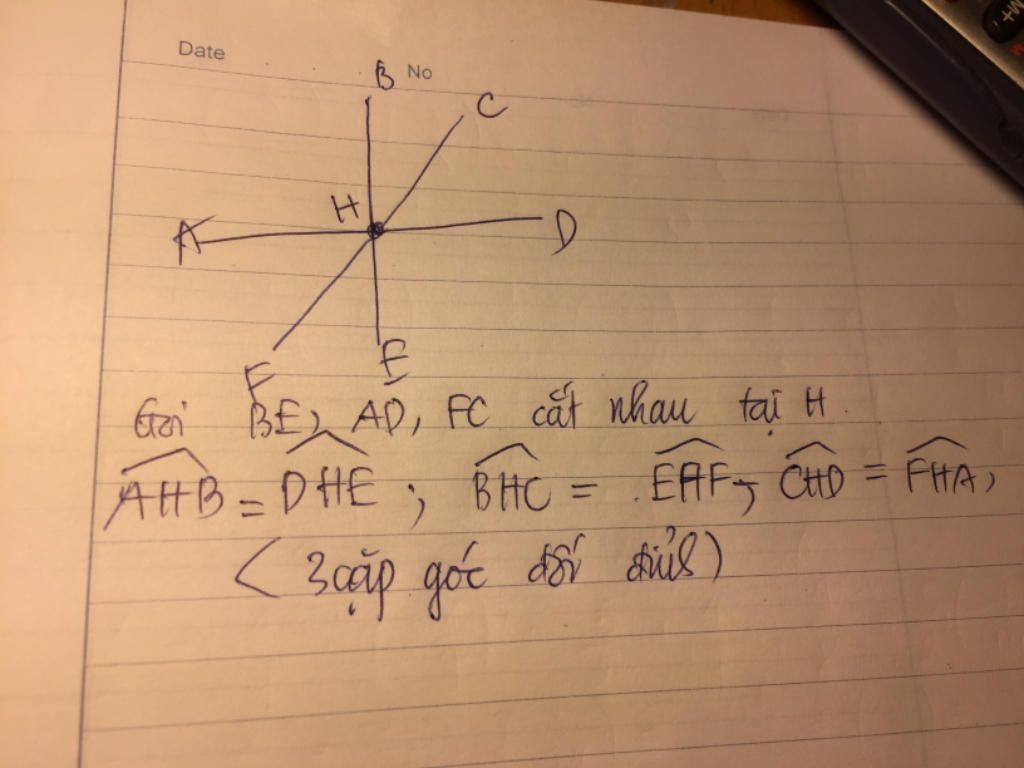 Date
No
B
C
H
A
D
F
E
Gọi BE, AD, FC cắt nhau tại H.
AHB = DHE ; BHC = EHF ; CHD = FHA,
( 3 cặp góc đối đỉnh )
M+